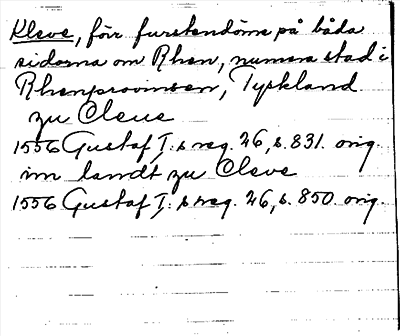 Kleve, förr furstendöme på båda
sidorna om Rhen, numera stad i
Rhenprovinsen, Tyskland
zu Cleue
1556 Gustaf I:s reg. 26, s. 831. orig.
im landt zu Cleve
1556 Gustaf I:s reg. 26, s. 850. orig.